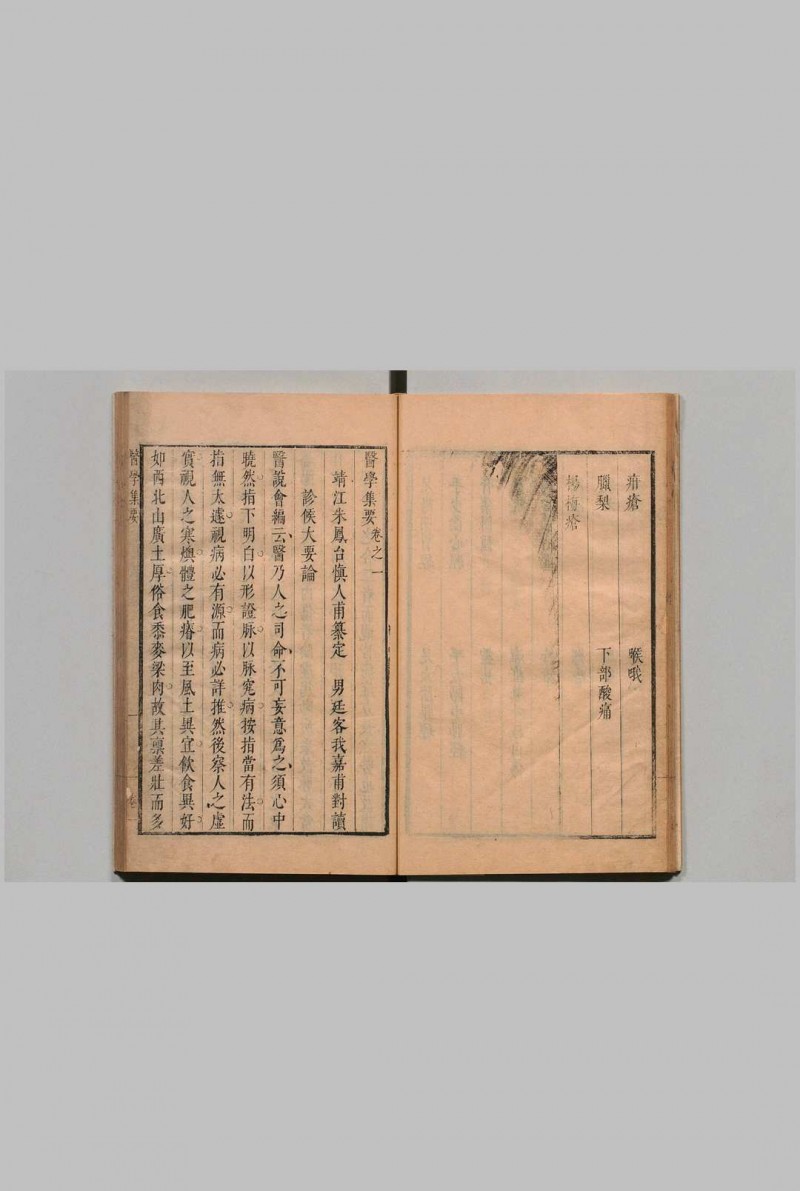 疳瘡
喉哦
臘梨
下部酸痛
楊梅瘡
醫學集要卷之一
靖江朱鳳台愼人甫纂定　男廷客我嘉甫對讀
診候大要論
醫說會編云醫乃人之司命不可妄意爲之須心中
曉然指下明白以形證脉以脉究病按指當有法而
指無太遽視病必有源而病必詳推然後察人之虛
實視人之寒燠體之肥瘠以至風土異宜飮食異好
如西北山廣土厚俗食黍麥梁肉故其禀差壯而多
醫學集要
卷一